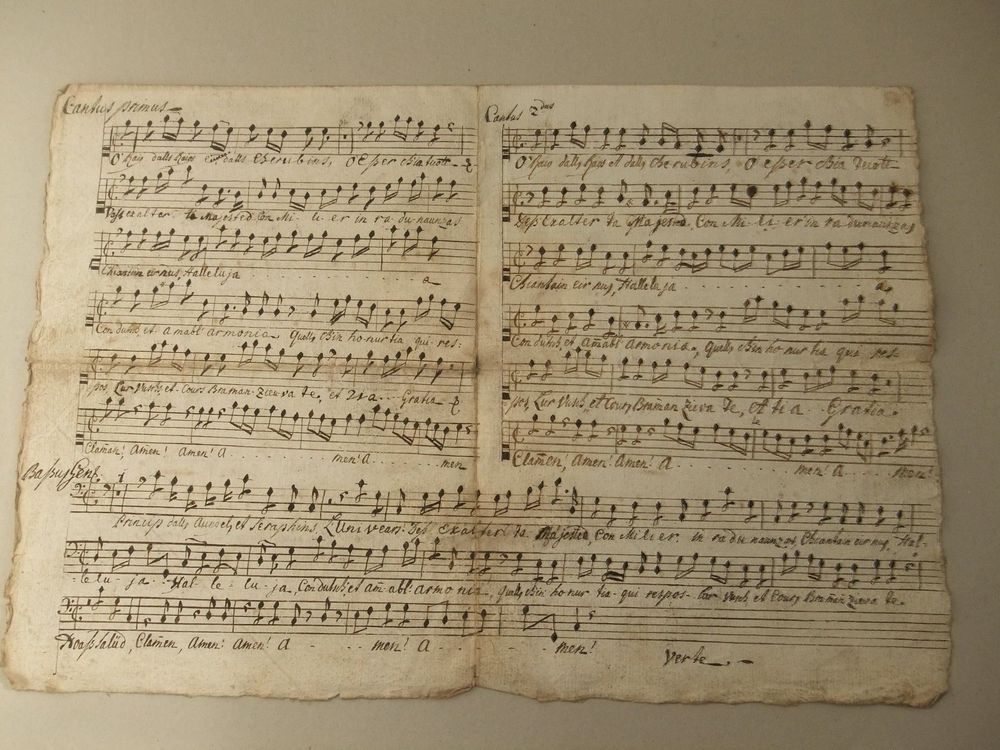 Cantus primus
O Raig dalls Raigs et dalls Cherubins, O esser chia tuott
Dess exalter ta Majested Con Mi - li - er in ra du naunzas
Chiantain eir nus, Halleluja a
Con dutsch et amabl' armonia quells chin ho nur tia qui res -
pos, Lur Vusch, et Cours Braman zieva te, et tia Gratia
Clamen! Amen! Amen! A men! A men
Cantus 2dus
O Raig dalls Raigs et dalls Cherubins, O esser chia tuott
Dess Exalter ta Majested Con Mi - li er in ra du naunzas
Chiantain eir nus, Halleluja a
Con dutsch et amabl armonia, quells chin ho nur tia qui res -
pos, Lur Vusch, et Cours Braman zieva te, et tia Gratia.
Clamen, Amen! Amen! A men! A men!
Bassus Gen:
Princip dalls Aunguels et Seraphins, L'Univears: Dess exalter ta Majested Con Milier in ra du naunzas, Chiantain eir nus, Hal -
le - lu - ja Hal - le - lu - ja Con dutsch, et am - abl' armonia, quells chin ho nur tia - qui respos - Lur Vusch, et Cours, Braman zieva te.
salüd, Clamen, Amen! Amen! A men! A men!
Verte